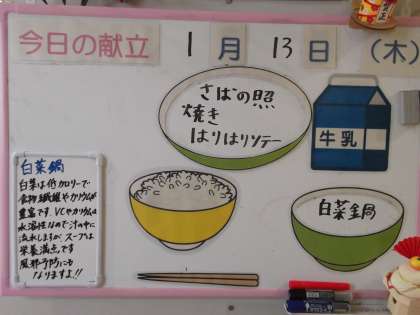 今日の献立 1月13日(木)
さばの照
焼き
はりはりソテー
牛乳
白菜鍋
白菜鍋
白菜は低カロリーで
食物繊維やカリウムが
豊富です。VCやカリウムは
水溶性なので汁の中に
流れしますが、スープは
栄養満点です
風邪予防にも
なりますよ!!